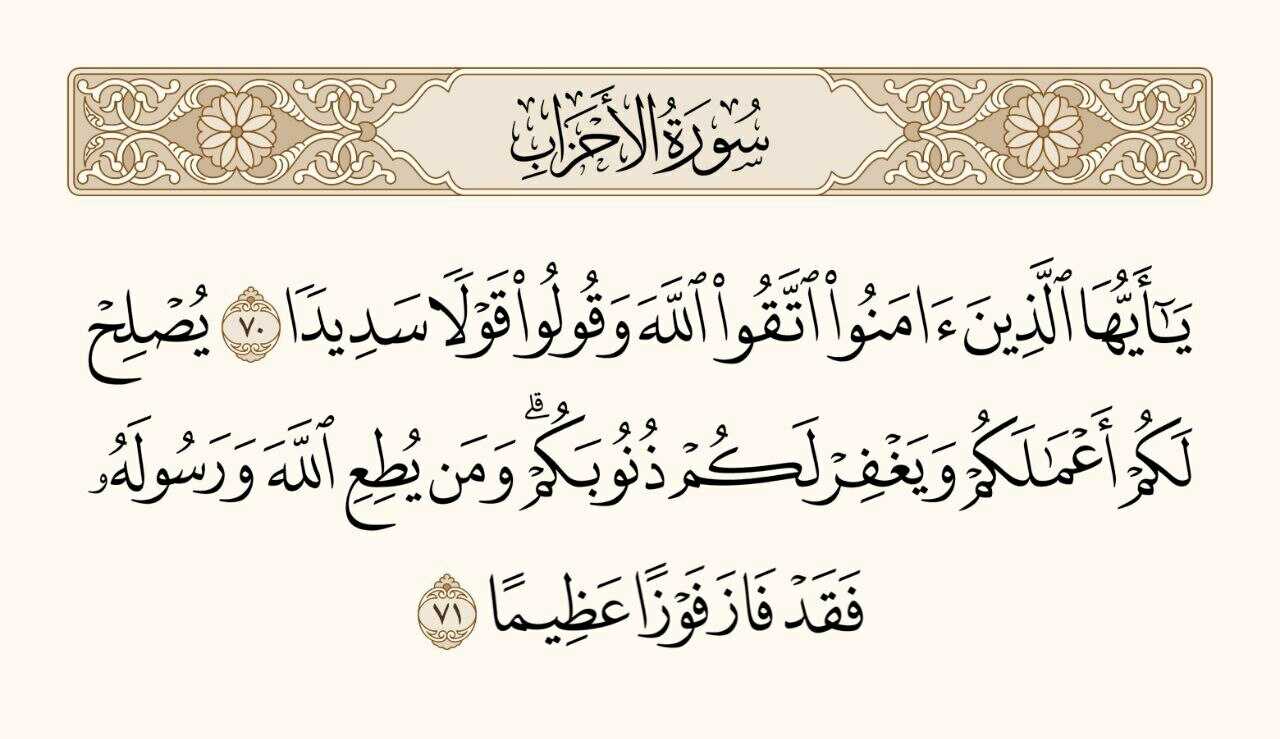 سُورَةُ الأَحْزَابِ
يَـٰٓأَيُّهَا ٱلَّذِينَ ءَامَنُوا۟ ٱتَّقُوا۟ ٱللَّهَ وَقُولُوا۟ قَوْلًا سَدِيدًا ٧٠ يُصْلِحْ
لَكُمْ أَعْمَـٰلَكُمْ وَيَغْفِرْ لَكُمْ ذُنُوبَكُمْ ۗ وَمَن يُطِعِ ٱللَّهَ وَرَسُولَهُۥ
فَقَدْ فَازَ فَوْزًا عَظِيمًا ٧١